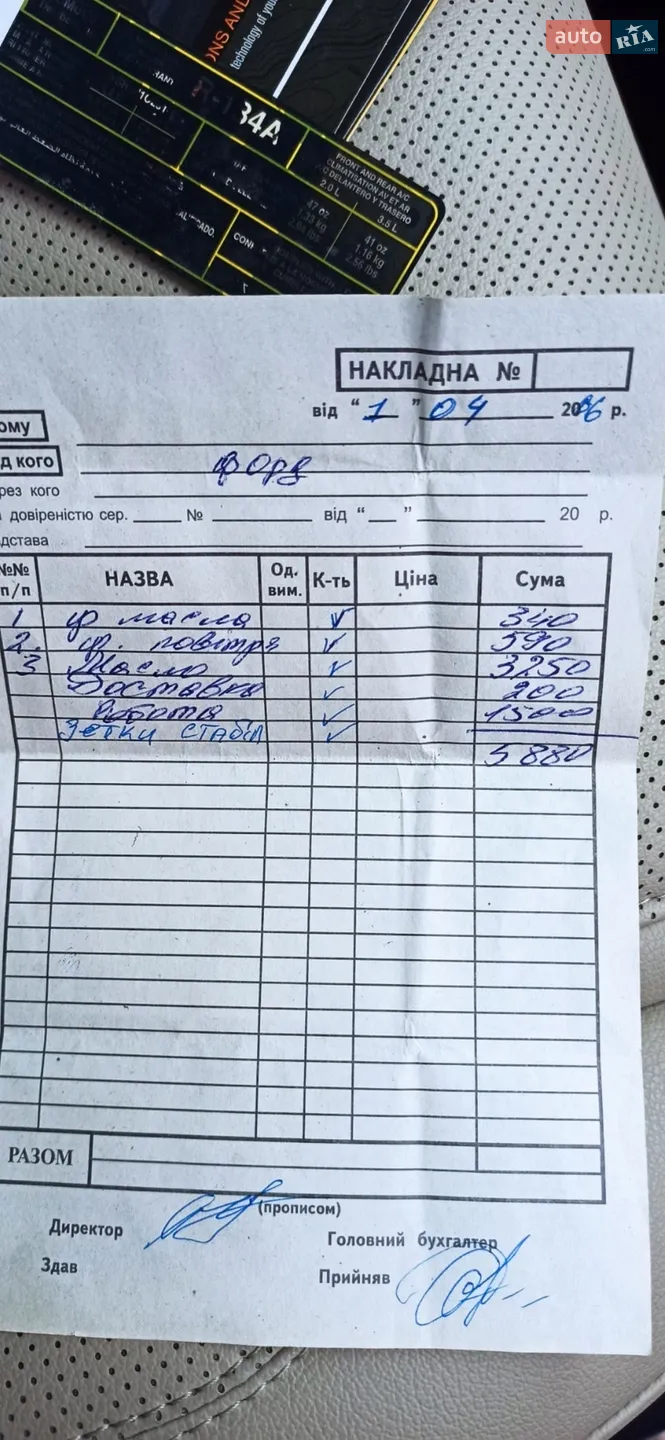 auto RIA .com
ONS AND
technology of you
34A
FRONT AND REAR A/C
CLIMATISATION AV ET AR
A/C DELANTERO Y TRASERO
2.0 L 3.5 L
47 oz 41 oz
1.33 kg 1.16 kg
2.56 lbs
НАКЛАДНА №
від “ 1 ” 04 2026 р.
ому
д кого форд
рез кого
довіреністю сер. № від “ ” 20 р.
дстава
№№ п/п НАЗВА Од. вим. К-ть Ціна Сума
1 ф масла 340
2. ф. повітря 590
3 Масло 3250
Доставка 200
Робота 1500
5880
РАЗОМ
(прописом)
Директор Головний бухгалтер
Здав Прийняв